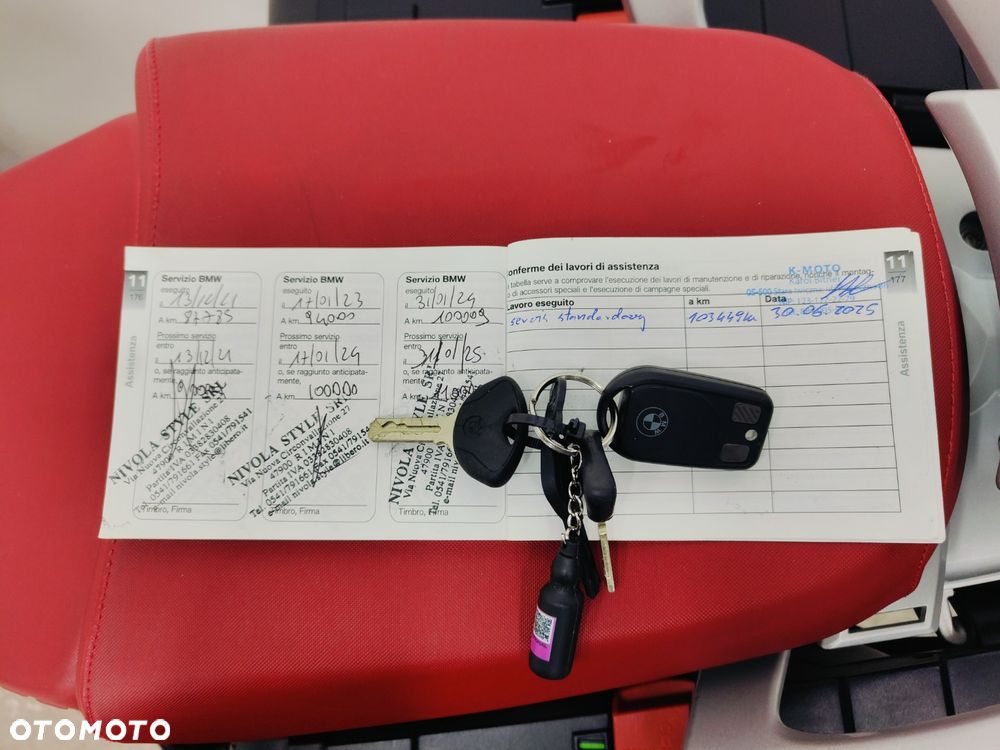 11
176
Assistenza
Servizio BMW
eseguito
il 13/12/21
A km 87735
Prossimo servizio
entro
il 13/12/21
o, se raggiunto anticipata-
mente,
A km
NIVOLA STYLE SRL
Via Nuova Circonvallazione 27
47900 RIMINI
Partita IVA 03382830408
Tel. 0541/791661 Fax 0541/791541
e-mail nivola.style@libero.it
Timbro, Firma
Servizio BMW
eseguito
il 17/01/23
A km 94000
Prossimo servizio
entro
il 17/01/24
o, se raggiunto anticipata-
mente,
A km 100000
NIVOLA STYLE SRL
Via Nuova Circonvallazione 27
47900 RIMINI
Partita IVA
Tel. 0541/791661 Fax 0541/791541
e-mail nivola.style@libero.it
Timbro, Firma
Servizio BMW
eseguito
il 31/01/24
A km 100009
Prossimo servizio
entro
il 31/01/25
o, se raggiunto anticipata-
mente,
A km
NIVOLA STYLE
Via Nuova
47900
Partita IVA
Tel. 0541/
e-mail
Timbro, Firma
onferme dei lavori di assistenza
tabella serve a comprovare l'esecuzione dei lavori di manutenzione e di riparazione, nonché il montag-
o di accessori speciali e l'esecuzione di campagne speciali.
K-MOTO
Karol Bitner
05-500 Stara
Lavoro eseguito a km Data
serwis standardowy 103449km 30.06.2025
11
177
Assistenza
BMW
OTOMOTO